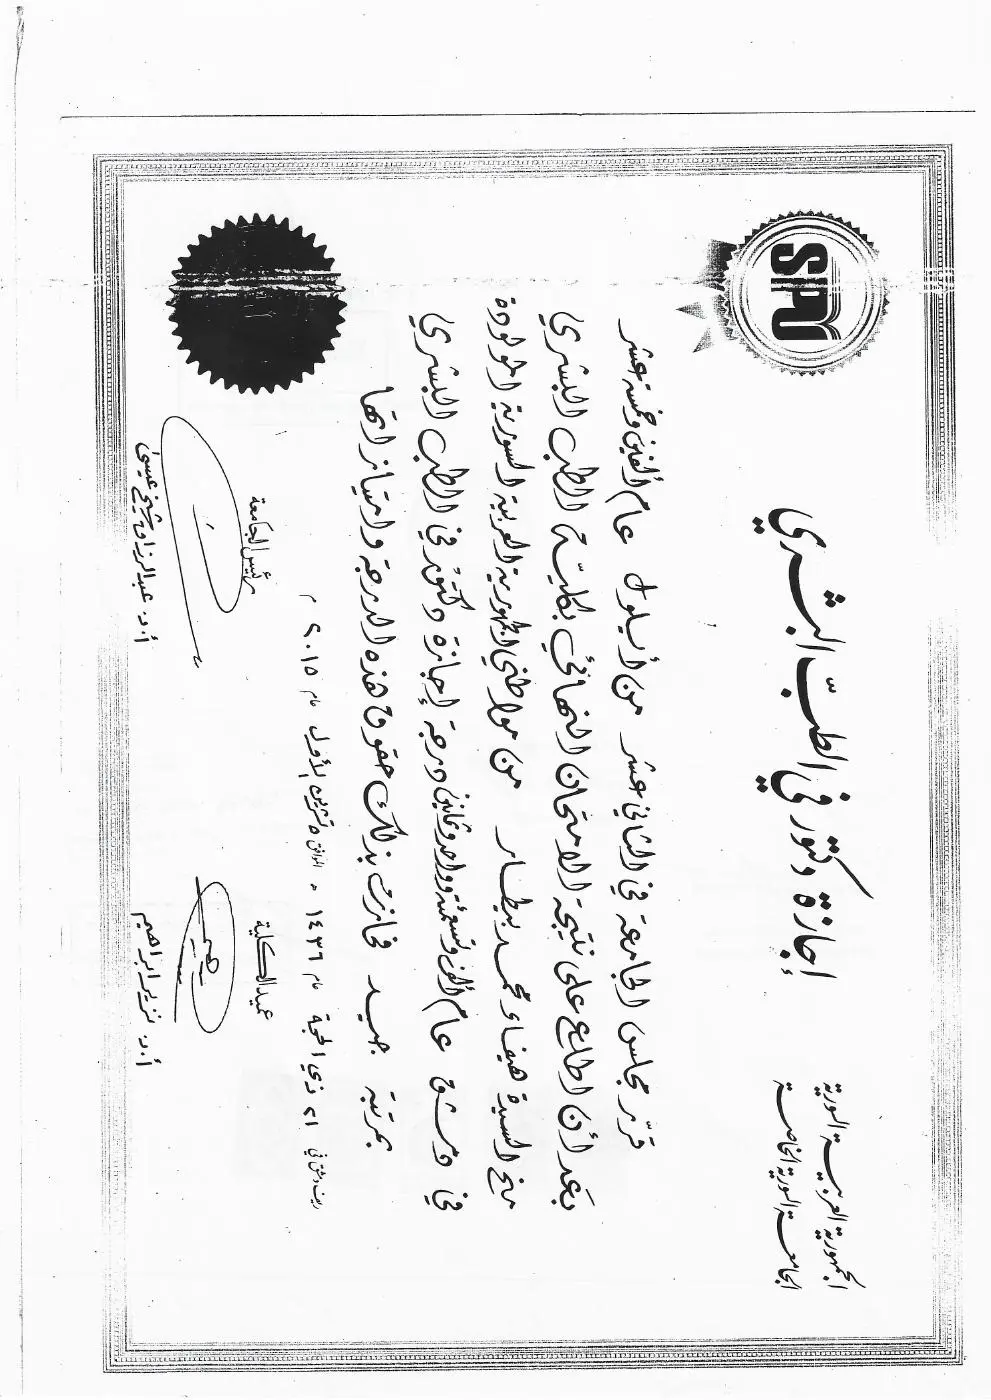 الجمهورية العربية السورية
الجامعة السورية الخاصة
SPU
إجازة دكتور في الطبّ البشري
قرّر مجلس الجامعة في الثاني عشر من أيلول عام ألفين وخمسة عشر
بعد أن اطلع على نتيجة الامتحان النهائي بكلية الطب البشري
منح السيدة هيفاء محمد بيطار من مواطني الجمهورية العربية السورية المولودة
في دمشق عام ألف وتسعمئة وواحد وثمانين درجة إجازة دكتور في الطب البشري
بمرتبة جيد فازت بذلك حقوق هذه الدرجة وامتيازاتها
ريف دمشق في ٢١ ذي الحجة عام ١٤٣٦ هـ الموافق ٥ تشرين الأول عام ٢٠١٥ م
عميد الكلية
رئيس الجامعة
أ.د. نزير ابراهيم
أ.د. عبد الرزاق شيخ عيسى